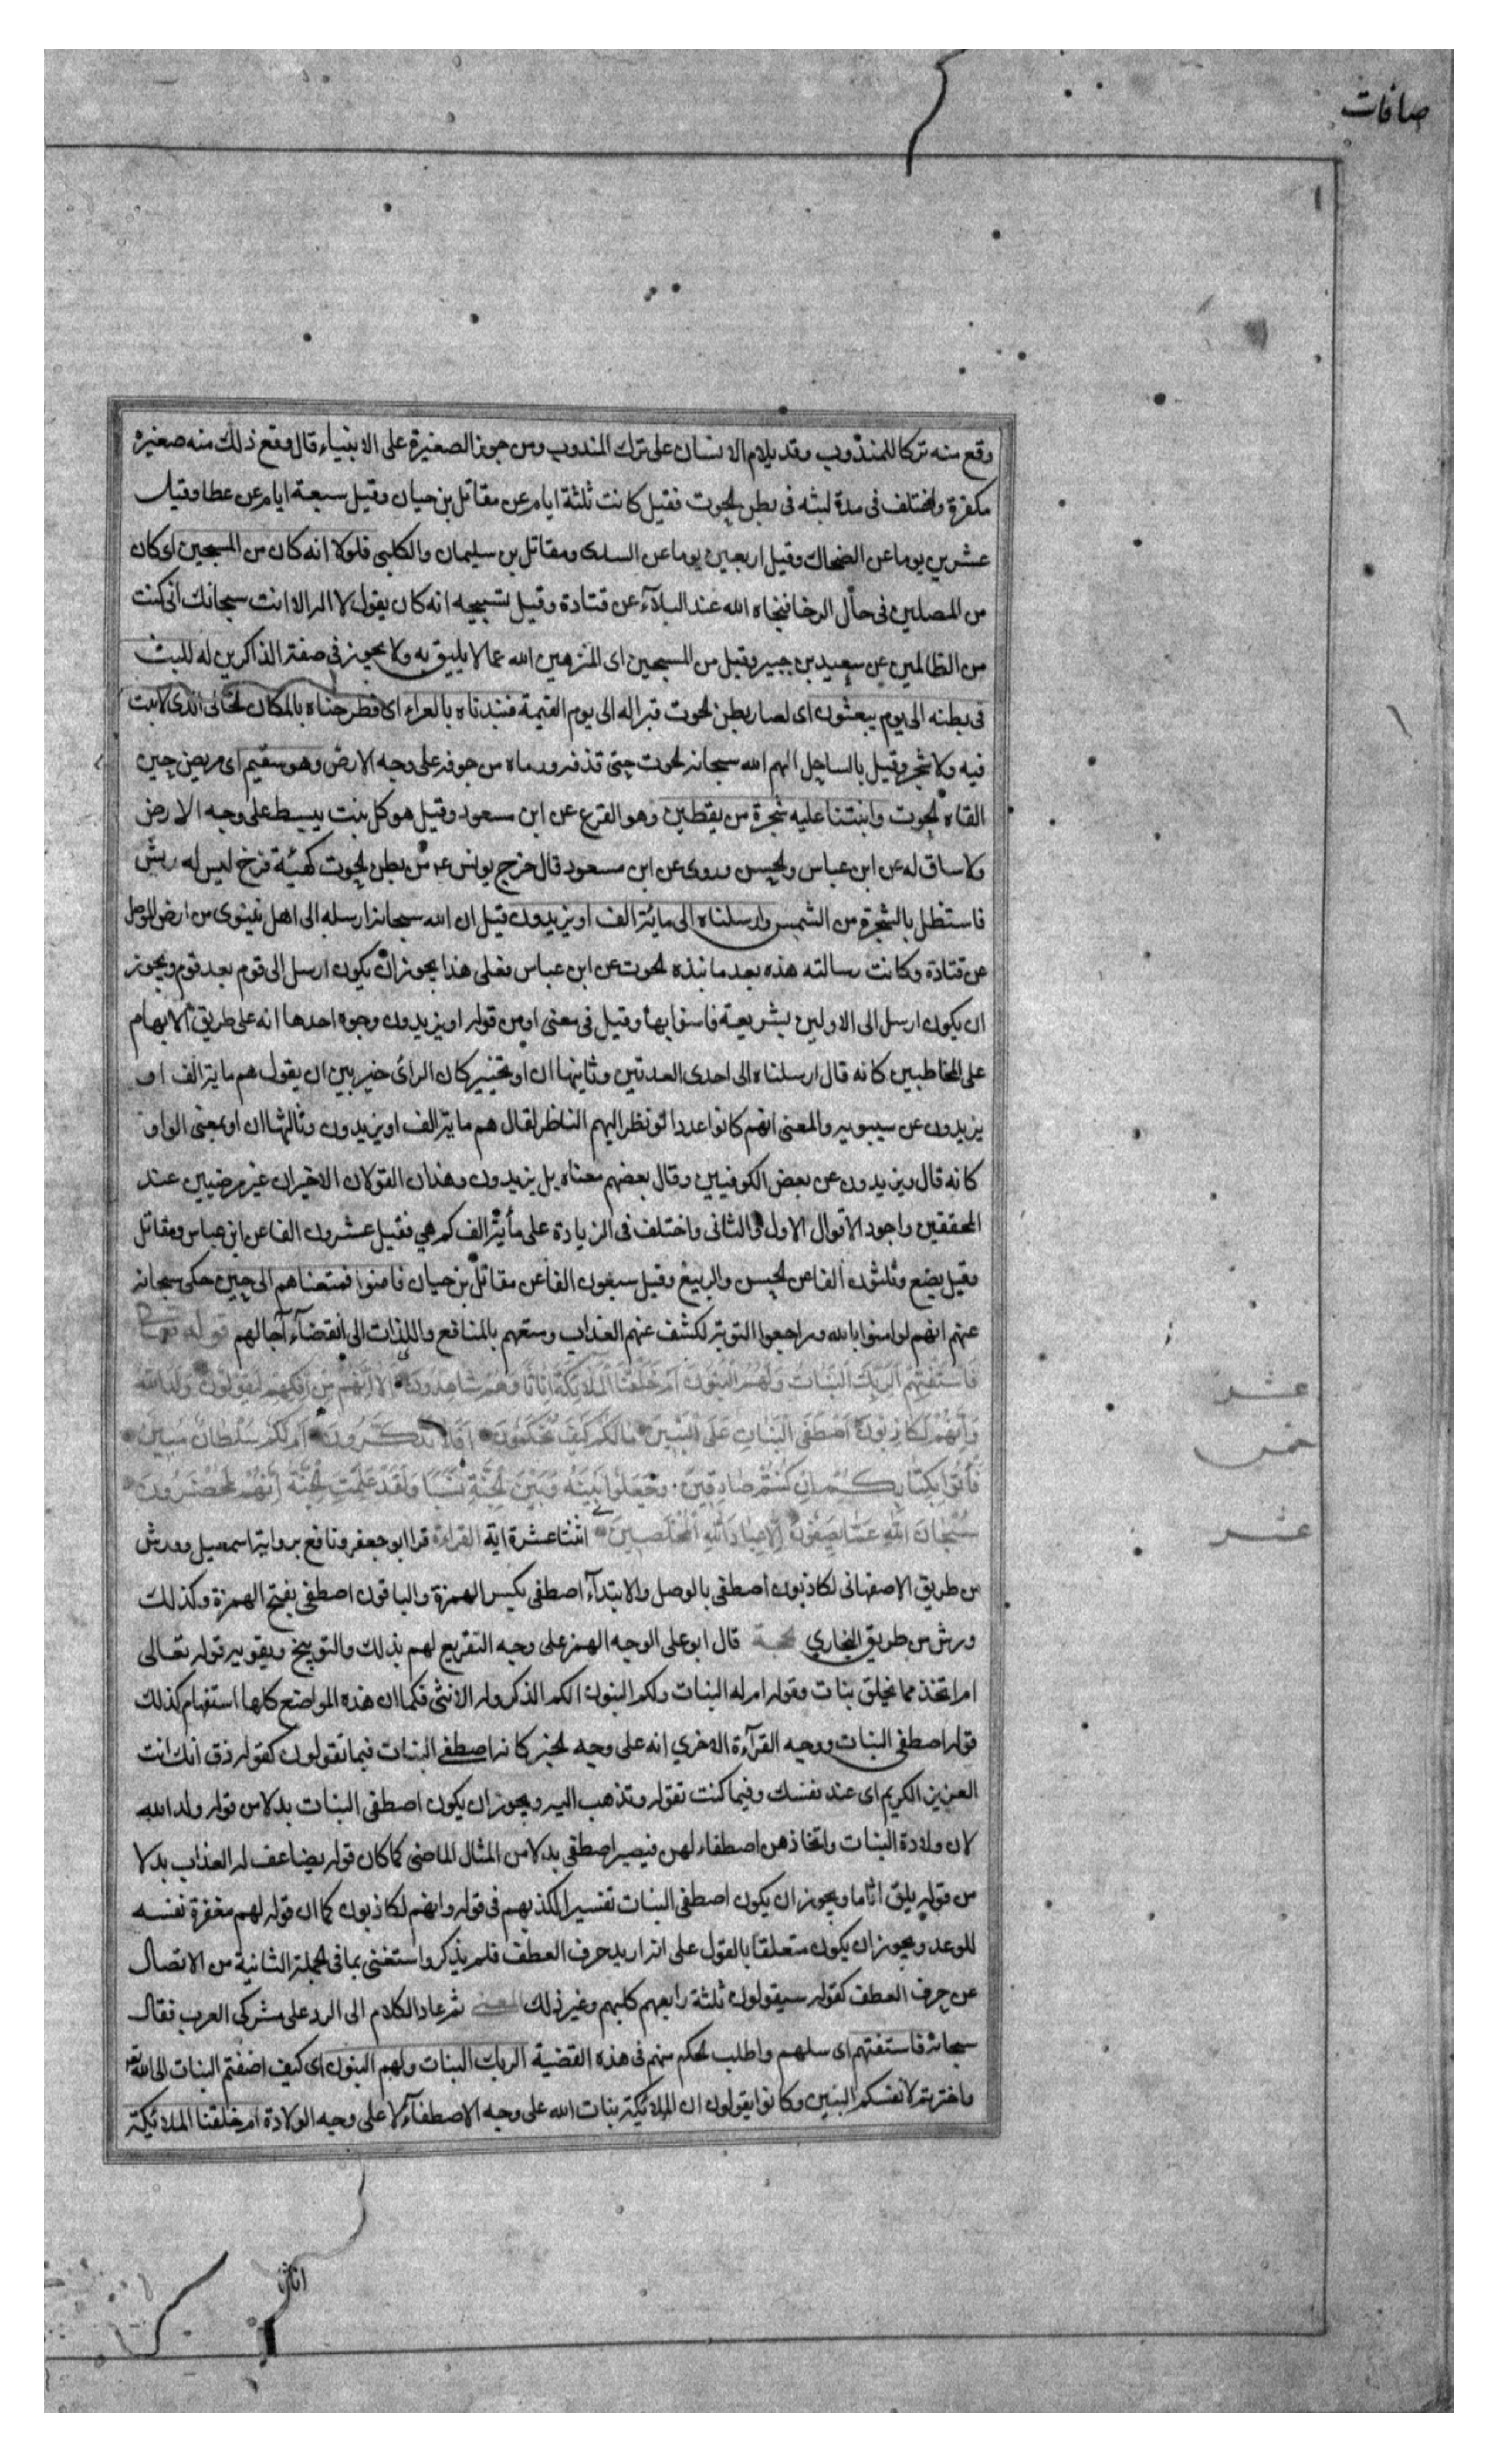 صافات
وقع منه تركا للمندوب وقد يلام الانسان على ترك المندوب ومن جوز الصغيرة على الانبياء قال وقع ذلك منه صغيره
مكفرة واختلف فى مدة لبثه فى بطن الحوت فقيل كانت ثلثة ايام عن مقاتل بن حيان وقيل سبعة ايام عن عطا وقيل
عشرين يوما عن الضحاك وقيل اربعين يوما عن السدى ومقاتل بن سليمان والكلبى فلولا انه كان من المسبحين اى كان
من المصلين فى حال الرخا فنجاه الله عند البلآء عن قتادة وقيل تسبيحه انه كان يقول لا اله الا انت سبحانك انى كنت
من الظالمين عن سعيد بن جبير وقيل من المسبحين اى المنزهين الله عما لا يليق به ولا يجوز فى صفته الذاكرين له للبث
فى بطنه الى يوم يبعثون اى لصار بطن الحوت قبرا له الى يوم القيمة فنبذناه بالعراء اى فطرحناه بالمكان الخالى الذى لا نبت
فيه ولا شجر وقيل بالساحل الهم الله سبحانه الحوت حتى قذفه ورماه من جوفه على وجه الارض وهو سقيم اى مريض حين
القاه الحوت وانبتنا عليه شجرة من يقطين وهو القرع عن ابن مسعود وقيل هو كل نبت يبسط على وجه الارض
ولا ساق له عن ابن عباس والحسن وروى عن ابن مسعود قال خرج يونس ع من بطن الحوت كهيئة فرخ ليس له ريش
فاستظل بالشجرة من الشمس وارسلناه الى مائة الف او يزيدون قيل ان الله سبحانه ارسله الى اهل نينوى من ارض الموصل
عن قتادة وكانت رسالته هذه بعد ما نبذه الحوت عن ابن عباس فعلى هذا يجوز ان يكون ارسل الى قوم بعد قوم ويجوز
ان يكون ارسل الى الاولين بشريعة فامنوا بها وقيل فى معنى او من قوله او يزيدون وجوه احدها انه على طريق الابهام
على المخاطبين كانه قال ارسلناه الى احدى العدتين وثانيها ان او تخيير كان الرائى خير بين ان يقول هم مائة الف او
يزيدون عن سيبويه والمعنى انهم كانوا عددا لو نظر اليهم الناظر لقال هم مائة الف او يزيدون وثالثها ان او بمعنى الواو
كانه قال ويزيدون عن بعض الكوفيين وقال بعضهم معناه بل يزيدون وهذان القولان الاخيران غير مرضيين عند
المحققين واجود الاقوال الاول والثانى واختلف فى الزيادة على مأية الف كم هي فقيل عشرون الفا عن ابن عباس ومقاتل
وقيل بضع وثلثون الفا عن الحسن والربيع وقيل سبعون الفا عن مقاتل بن حيان فامنوا فمتعناهم الى حين حكى سبحانه
عنهم انهم لو امنوا بالله وراجعوا التوبة لكشف عنهم العذاب ومتعهم بالمنافع واللذات الى انقضآء آجالهم قوله تعالى
فَاسْتَفْتِهِمْ أَلِرَبِّكَ الْبَنَاتُ وَلَهُمُ الْبَنُونَ أَمْ خَلَقْنَا الْمَلَائِكَةَ إِنَاثًا وَهُمْ شَاهِدُونَ أَلَا إِنَّهُمْ مِنْ إِفْكِهِمْ لَيَقُولُونَ وَلَدَ اللهُ
وَإِنَّهُمْ لَكَاذِبُونَ أَصْطَفَى الْبَنَاتِ عَلَى الْبَنِينَ مَا لَكُمْ كَيْفَ تَحْكُمُونَ أَفَلَا تَذَكَّرُونَ أَمْ لَكُمْ سُلْطَانٌ مُبِينٌ
عشر
خمس
فَأْتُوا بِكِتَابِكُمْ إِنْ كُنْتُمْ صَادِقِينَ وَجَعَلُوا بَيْنَهُ وَبَيْنَ الْجِنَّةِ نَسَبًا وَلَقَدْ عَلِمَتِ الْجِنَّةُ إِنَّهُمْ لَمُحْضَرُونَ
سُبْحَانَ اللهِ عَمَّا يَصِفُونَ إِلَّا عِبَادَ اللهِ الْمُخْلَصِينَ اثنتا عشرة اية القراءة قرا ابو جعفر ونافع برواية اسمعيل وورش
عشر
من طريق الاصفهانى لكاذبون اصطفى بالوصل والابتدآء اصطفى بكسر الهمزة والباقون اصطفى بفتح الهمزة وكذلك
ورش من طريق البخاري الحجة قال ابو على الوجه الهمز على وجه التقريع لهم بذلك والتوبيخ ويقويه قوله تعالى
ام اتخذ مما يخلق بنات وقوله ام له البنات ولكم البنون الكم الذكر وله الانثى فكما ان هذه المواضع كلها استفهام كذلك
قوله اصطفى البنات ووجه القرآءة الاخري انه على وجه الخبر كانه اصطفى البنات فيما تقولون كقوله ذق انك انت
العزيز الكريم اى عند نفسك وفيما كنت تقوله وتذهب اليه ويجوز ان يكون اصطفى البنات بدلا من قوله ولد الله
لان ولادة البنات واتخاذهن اصطفاء لهن فيصير اصطفى بدلا من المثال الماضى كما كان قوله يضاعف له العذاب بدلا
من قوله يلق اثاما ويجوز ان يكون اصطفى البنات تفسيرا لكذبهم فى قوله وانهم لكاذبون كما ان قوله لهم مغفرة تفسير
للوعد ويجوز ان يكون متعلقا بالقول على انه اريد حرف العطف فلم يذكر واستغنى بما فى الجملة الثانية من الاتصال
عن حرف العطف كقوله سيقولون ثلثة رابعهم كلبهم وغير ذلك المعنى ثم عاد الكلام الى الرد على مشركى العرب فقال
سبحانه فاستفتهم اى سلهم واطلب الحكم منهم فى هذه القضية الربك البنات ولهم البنون اى كيف اضفتم البنات الى الله تع
واخترتم لانفسكم البنين وكانوا يقولون ان الملائكة بنات الله على وجه الاصطفآء لا على وجه الولادة ام خلقنا الملائكة
اناثا